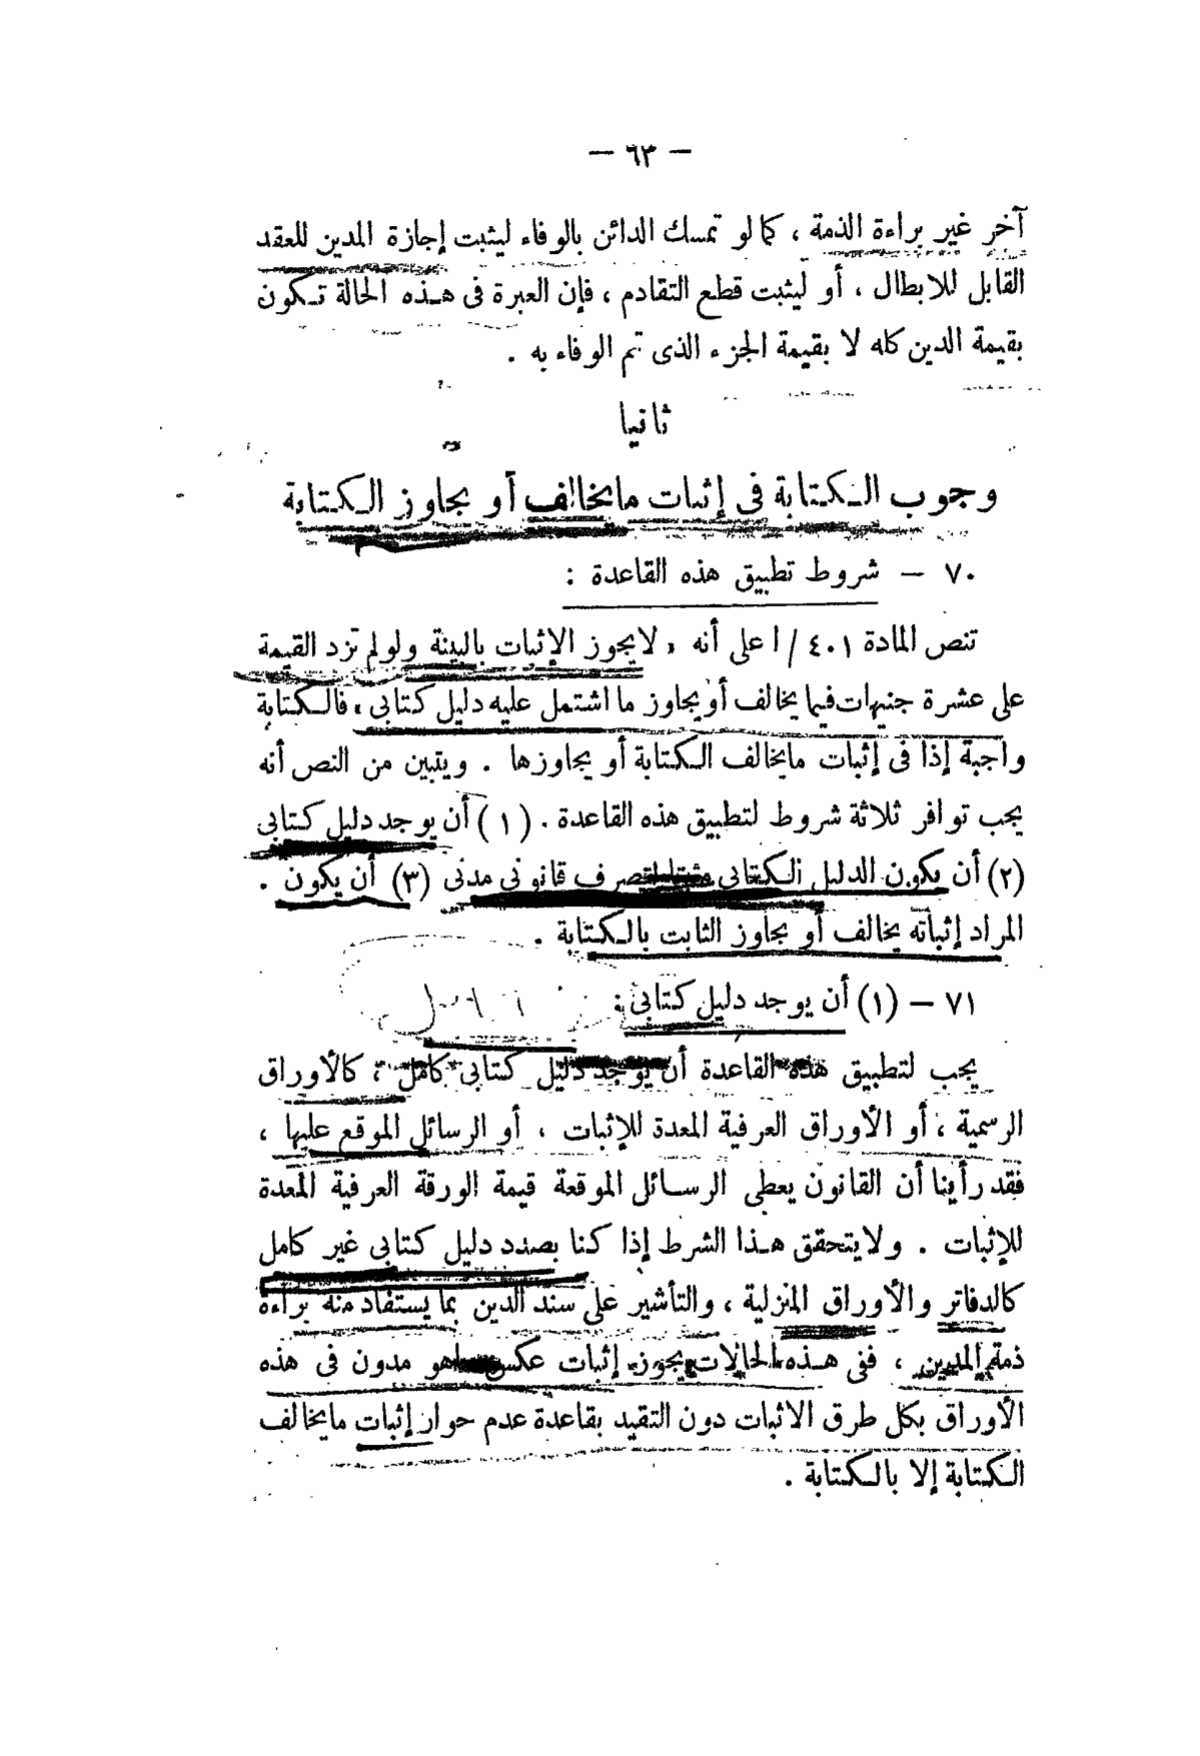 — ٦٣ —
آخر غير براءة الذمة ، كما لو تمسك الدائن بالوفاء ليثبت إجازة المدين للعقد
القابل للابطال ، أو ليثبت قطع التقادم ، فإن العبرة فى هذه الحالة تكون
بقيمة الدين كله لا بقيمة الجزء الذى تم الوفاء به .
ثانيا
وجوب الكتابة فى إثبات مايخالف أو يجاوز الكتابة
٧٠ — شروط تطبيق هذه القاعدة :
تنص المادة ٤٠١ / ا على أنه « لايجوز الإثبات بالبينة ولو لم تزد القيمة
على عشرة جنيهات فيما يخالف أو يجاوز ما اشتمل عليه دليل كتابى » فالكتابة
واجبة إذا فى إثبات مايخالف الكتابة أو يجاوزها . ويتبين من النص أنه
يجب توافر ثلاثة شروط لتطبيق هذه القاعدة . (١) أن يوجد دليل كتابى
(٢) أن يكون الدليل الكتابى مثبتا لتصرف قانونى مدنى (٣) أن يكون .
المراد إثباته يخالف أو يجاوز الثابت بالكتابة .
٧١ — (١) أن يوجد دليل كتابى :
يجب لتطبيق هذه القاعدة أن يوجد دليل كتابى كامل ، كالأوراق
الرسمية ، أو الأوراق العرفية المعدة للإثبات ، أو الرسائل الموقع عليها ،
فقد رأينا أن القانون يعطى الرسائل الموقعة قيمة الورقة العرفية المعدة
للإثبات . ولايتحقق هذا الشرط إذا كنا بصدد دليل كتابى غير كامل
كالدفاتر والأوراق المنزلية ، والتأشير على سند الدين بما يستفاد منه براءة
ذمة المدين ، ففى هذه الحالات يجوز إثبات عكس ماهو مدون فى هذه
الأوراق بكل طرق الاثبات دون التقيد بقاعدة عدم حواز إثبات مايخالف
الكتابة إلا بالكتابة .